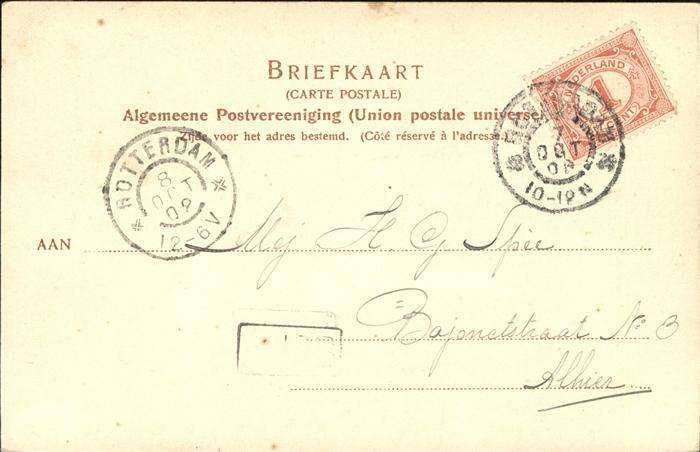 BRIEFKAART
(CARTE POSTALE)
Algemeene Postvereeniging (Union postale universe
Zijde voor het adres bestemd. (Côté réservé à l'adresse
NEDERLAND
1
CENT
7
OCT
10-12N
ROTTERDAM
8
OCT
02
12-6V
AAN Mej H. G. Spee
Bajonetstraat No 3
Alhier